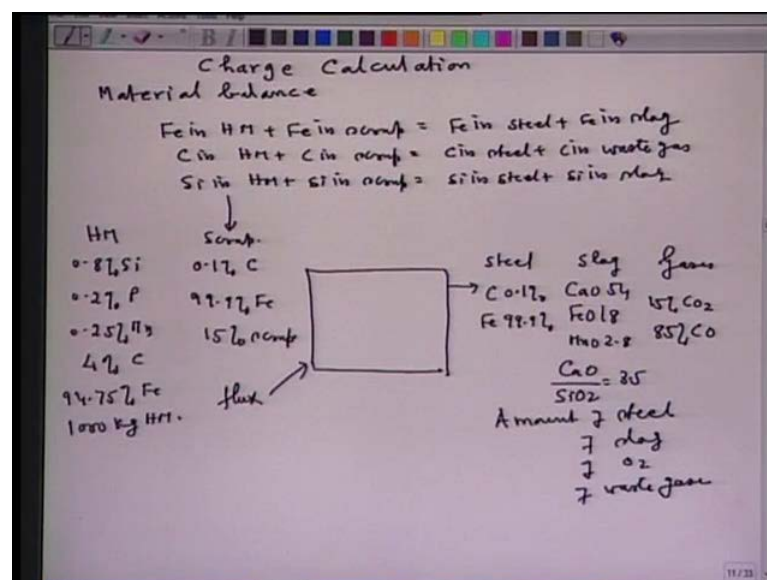 Charge Calculation
Material balance
Fe in HM + Fe in scrap = Fe in steel + Fe in slag
C in HM + C in scrap = C in steel + C in waste gas
Si in HM + Si in scrap = Si in steel + Si in slag
HM
0.8% Si
0.2% P
0.25% Mn
4% C
94.75% Fe
1000 kg HM.
Scrap.
0.1% C
99.9% Fe
15% scrap
flux
steel
C 0.1%
Fe 99.9%
slag
CaO 54
FeO 18
MnO 2.8
Gases
15% CO2
85% CO
CaO
SiO2 = 3.5
Amount of steel
of slag
of O2
of waste gases
11/33